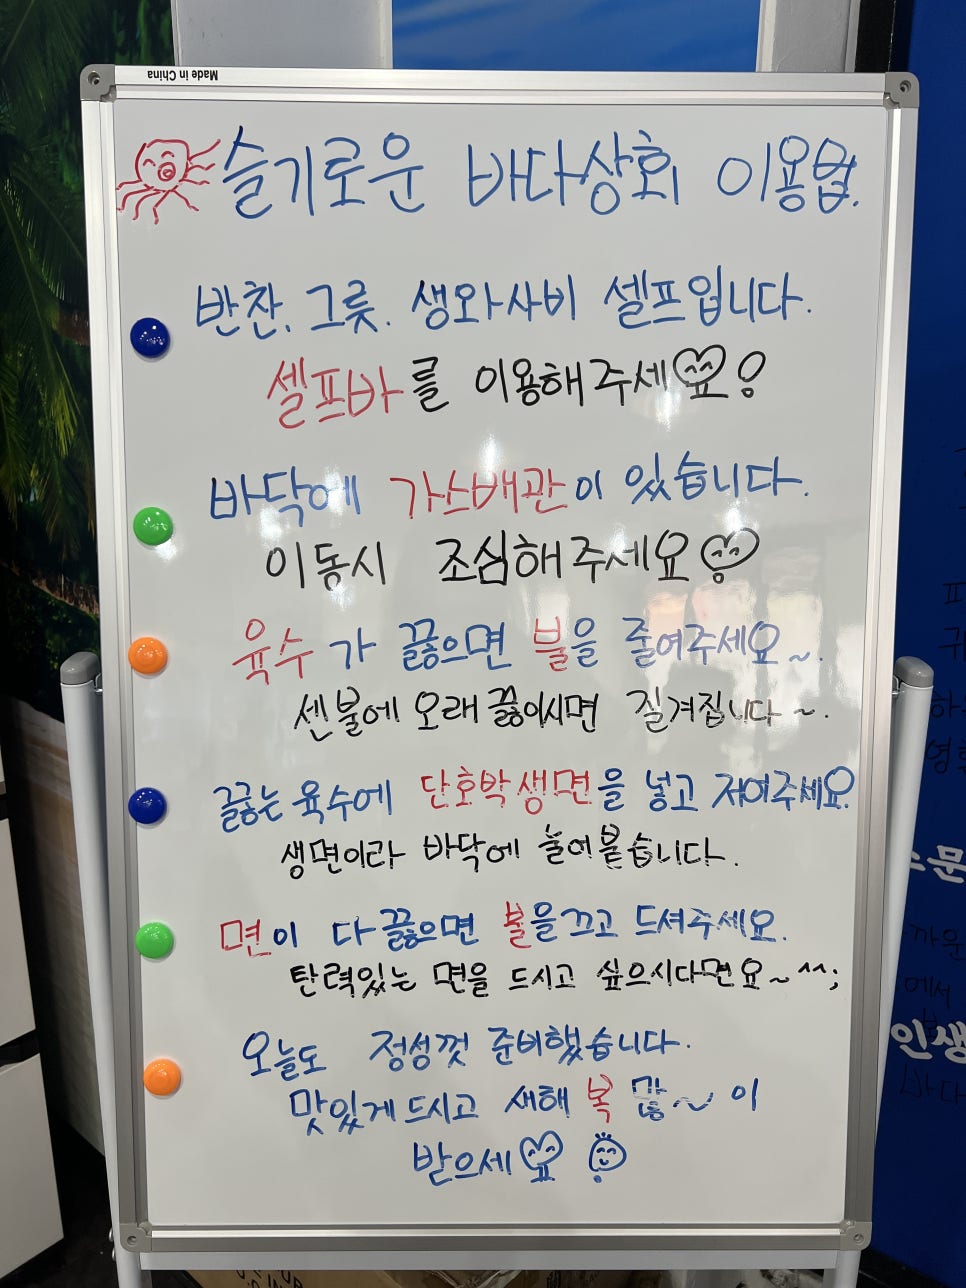 Made in China
슬기로운 바다상회 이용법.
반찬. 그릇. 생와사비 셀프입니다.
셀프바를 이용해주세요!
바닥에 가스배관이 있습니다.
이동시 조심해주세요!
육수가 끓으면 불을 줄여주세요~.
센불에 오래 끓이시면 질겨집니다~.
끓는 육수에 단호박생면을 넣고 저어주세요.
생면이라 바닥에 눌어붙습니다.
면이 다 끓으면 불을 끄고 드셔주세요.
탄력있는 면을 드시고 싶으시다면요~^^;
오늘도 정성껏 준비했습니다.
맛있게 드시고 새해 복 많~이
받으세요!
문
인생